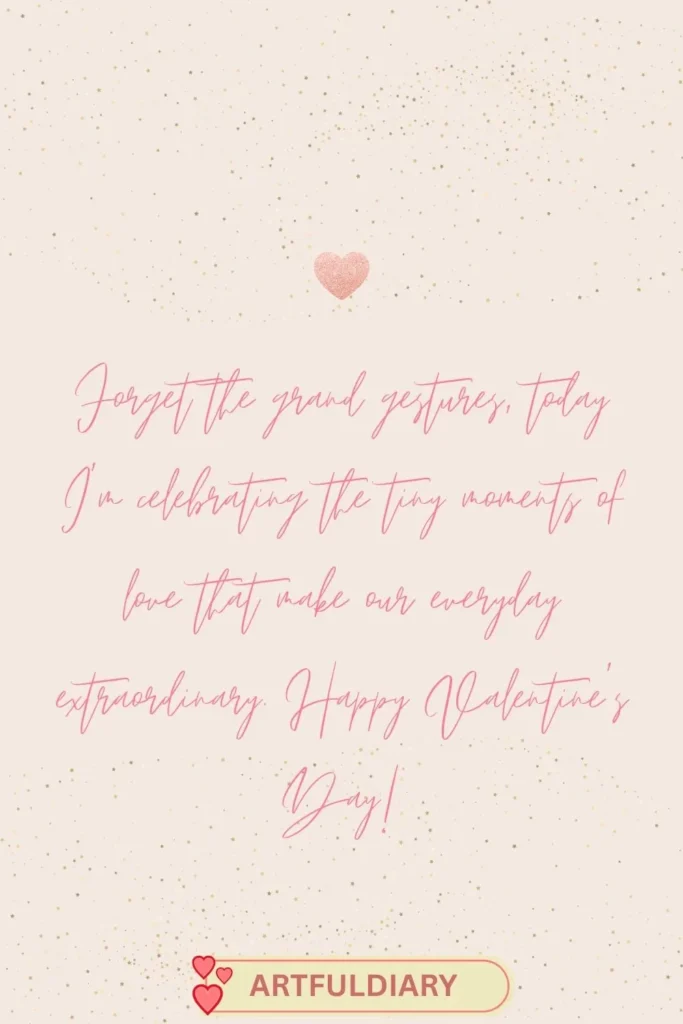 Forget the grand gestures, today
I'm celebrating the tiny moments of
love that make our everyday
extraordinary. Happy Valentine's
Day!
ARTFULDIARY